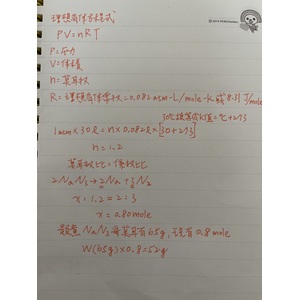 理想氣体方程式
PV=nRT
P=压力
V=体積
n=莫耳数
R=理想氣体常数=0.082 atm-L/mole-k 或 8.31 J/mole
30℃換算成K值=℃+273
1atm×30L=n×0.082×[30+273]
n=1.2
莫耳数比=係数比
2NaN3→2Na+3N2
x:1.2=2:3
x=0.80mol
NaN3每莫耳有65g,現有0.8mole
W(65g)×0.8=52g